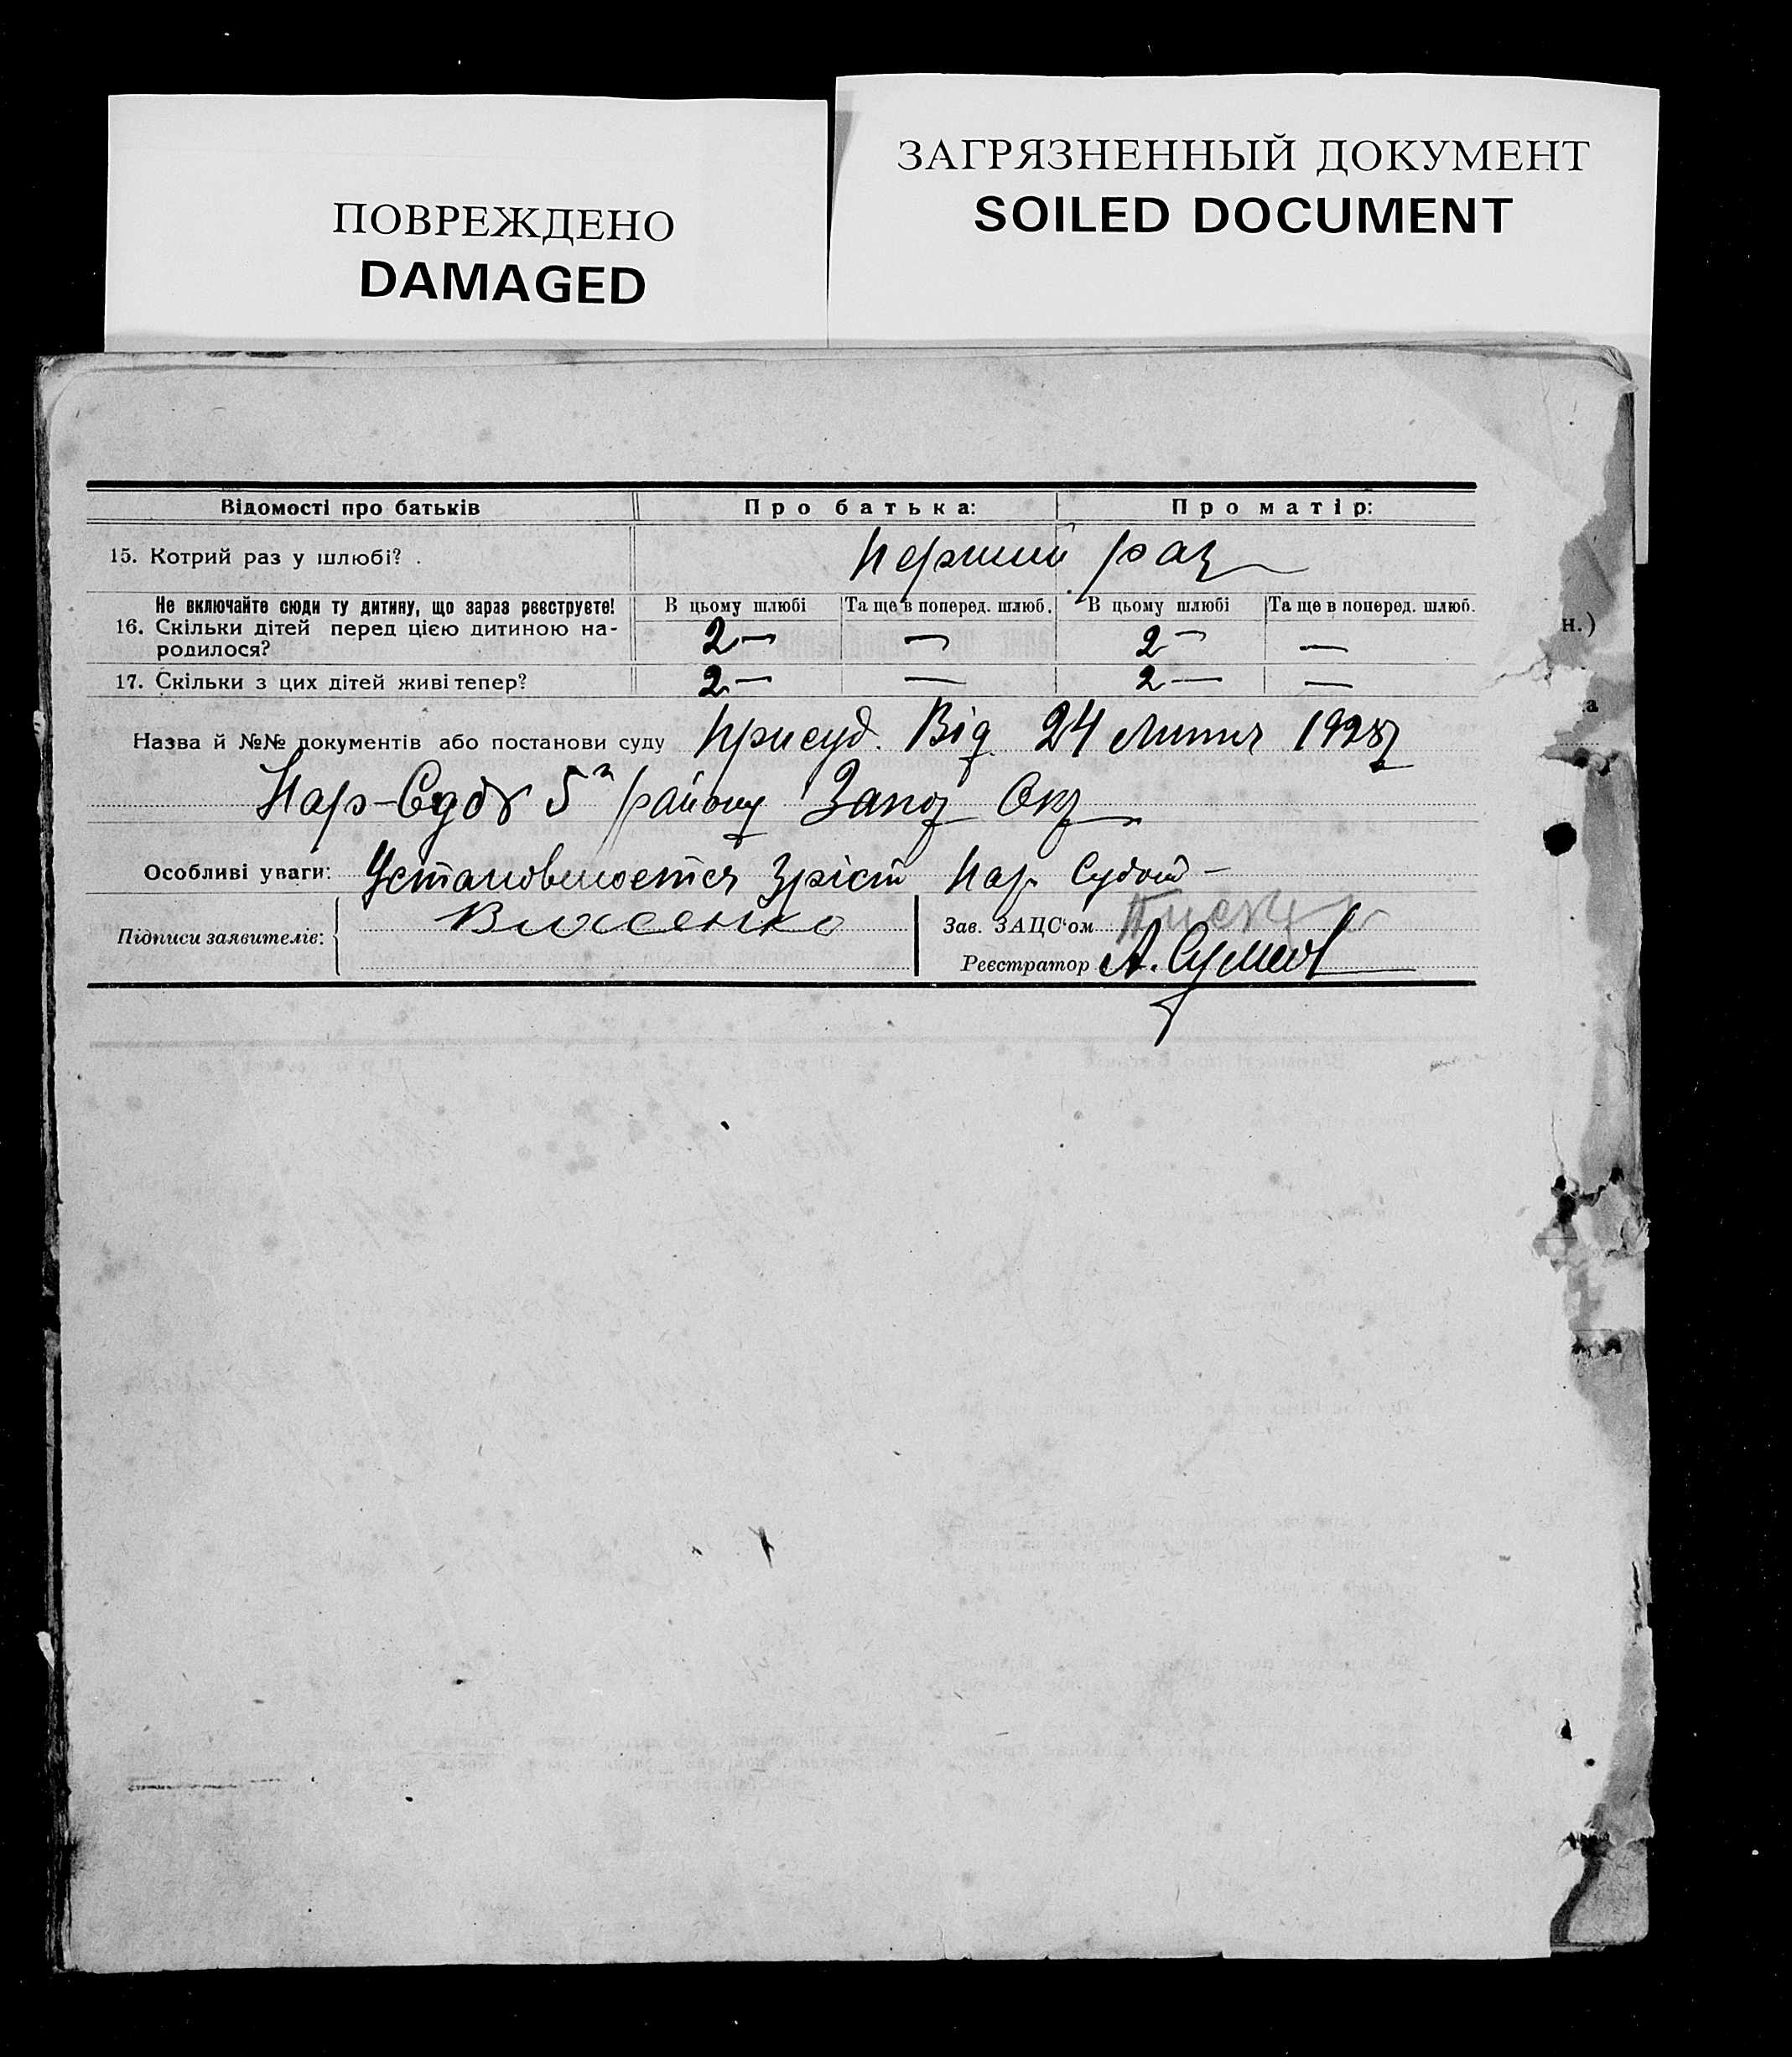 ПОВРЕЖДЕНО
DAMAGED
ЗАГРЯЗНЕННЫЙ ДОКУМЕНТ
SOILED DOCUMENT
Відомості про батьків Про батька: Про матір:
15. Котрий раз у шлюбі? . перший раз
Не включайте сюди ту дитину, що зараз реєструєте! В цьому шлюбі Та ще в поперед. шлюб. В цьому шлюбі Та ще в поперед. шлюб.
16. Скільки дітей перед цією дитиною на- 2 — — 2 — —
родилося?
17. Скільки з цих дітей живі тепер? 2 — — 2 — —
Назва й №№ документів або постанови суду Присуд. Від 24 липня 1928
Нар-Суду 5 району Запор Окр
Особливі уваги: Установлюється зріст Нар Судом —
Підписи заявителів: Власенко
Зав. ЗАЦС'ом
Реєстратор А.
н.)
а